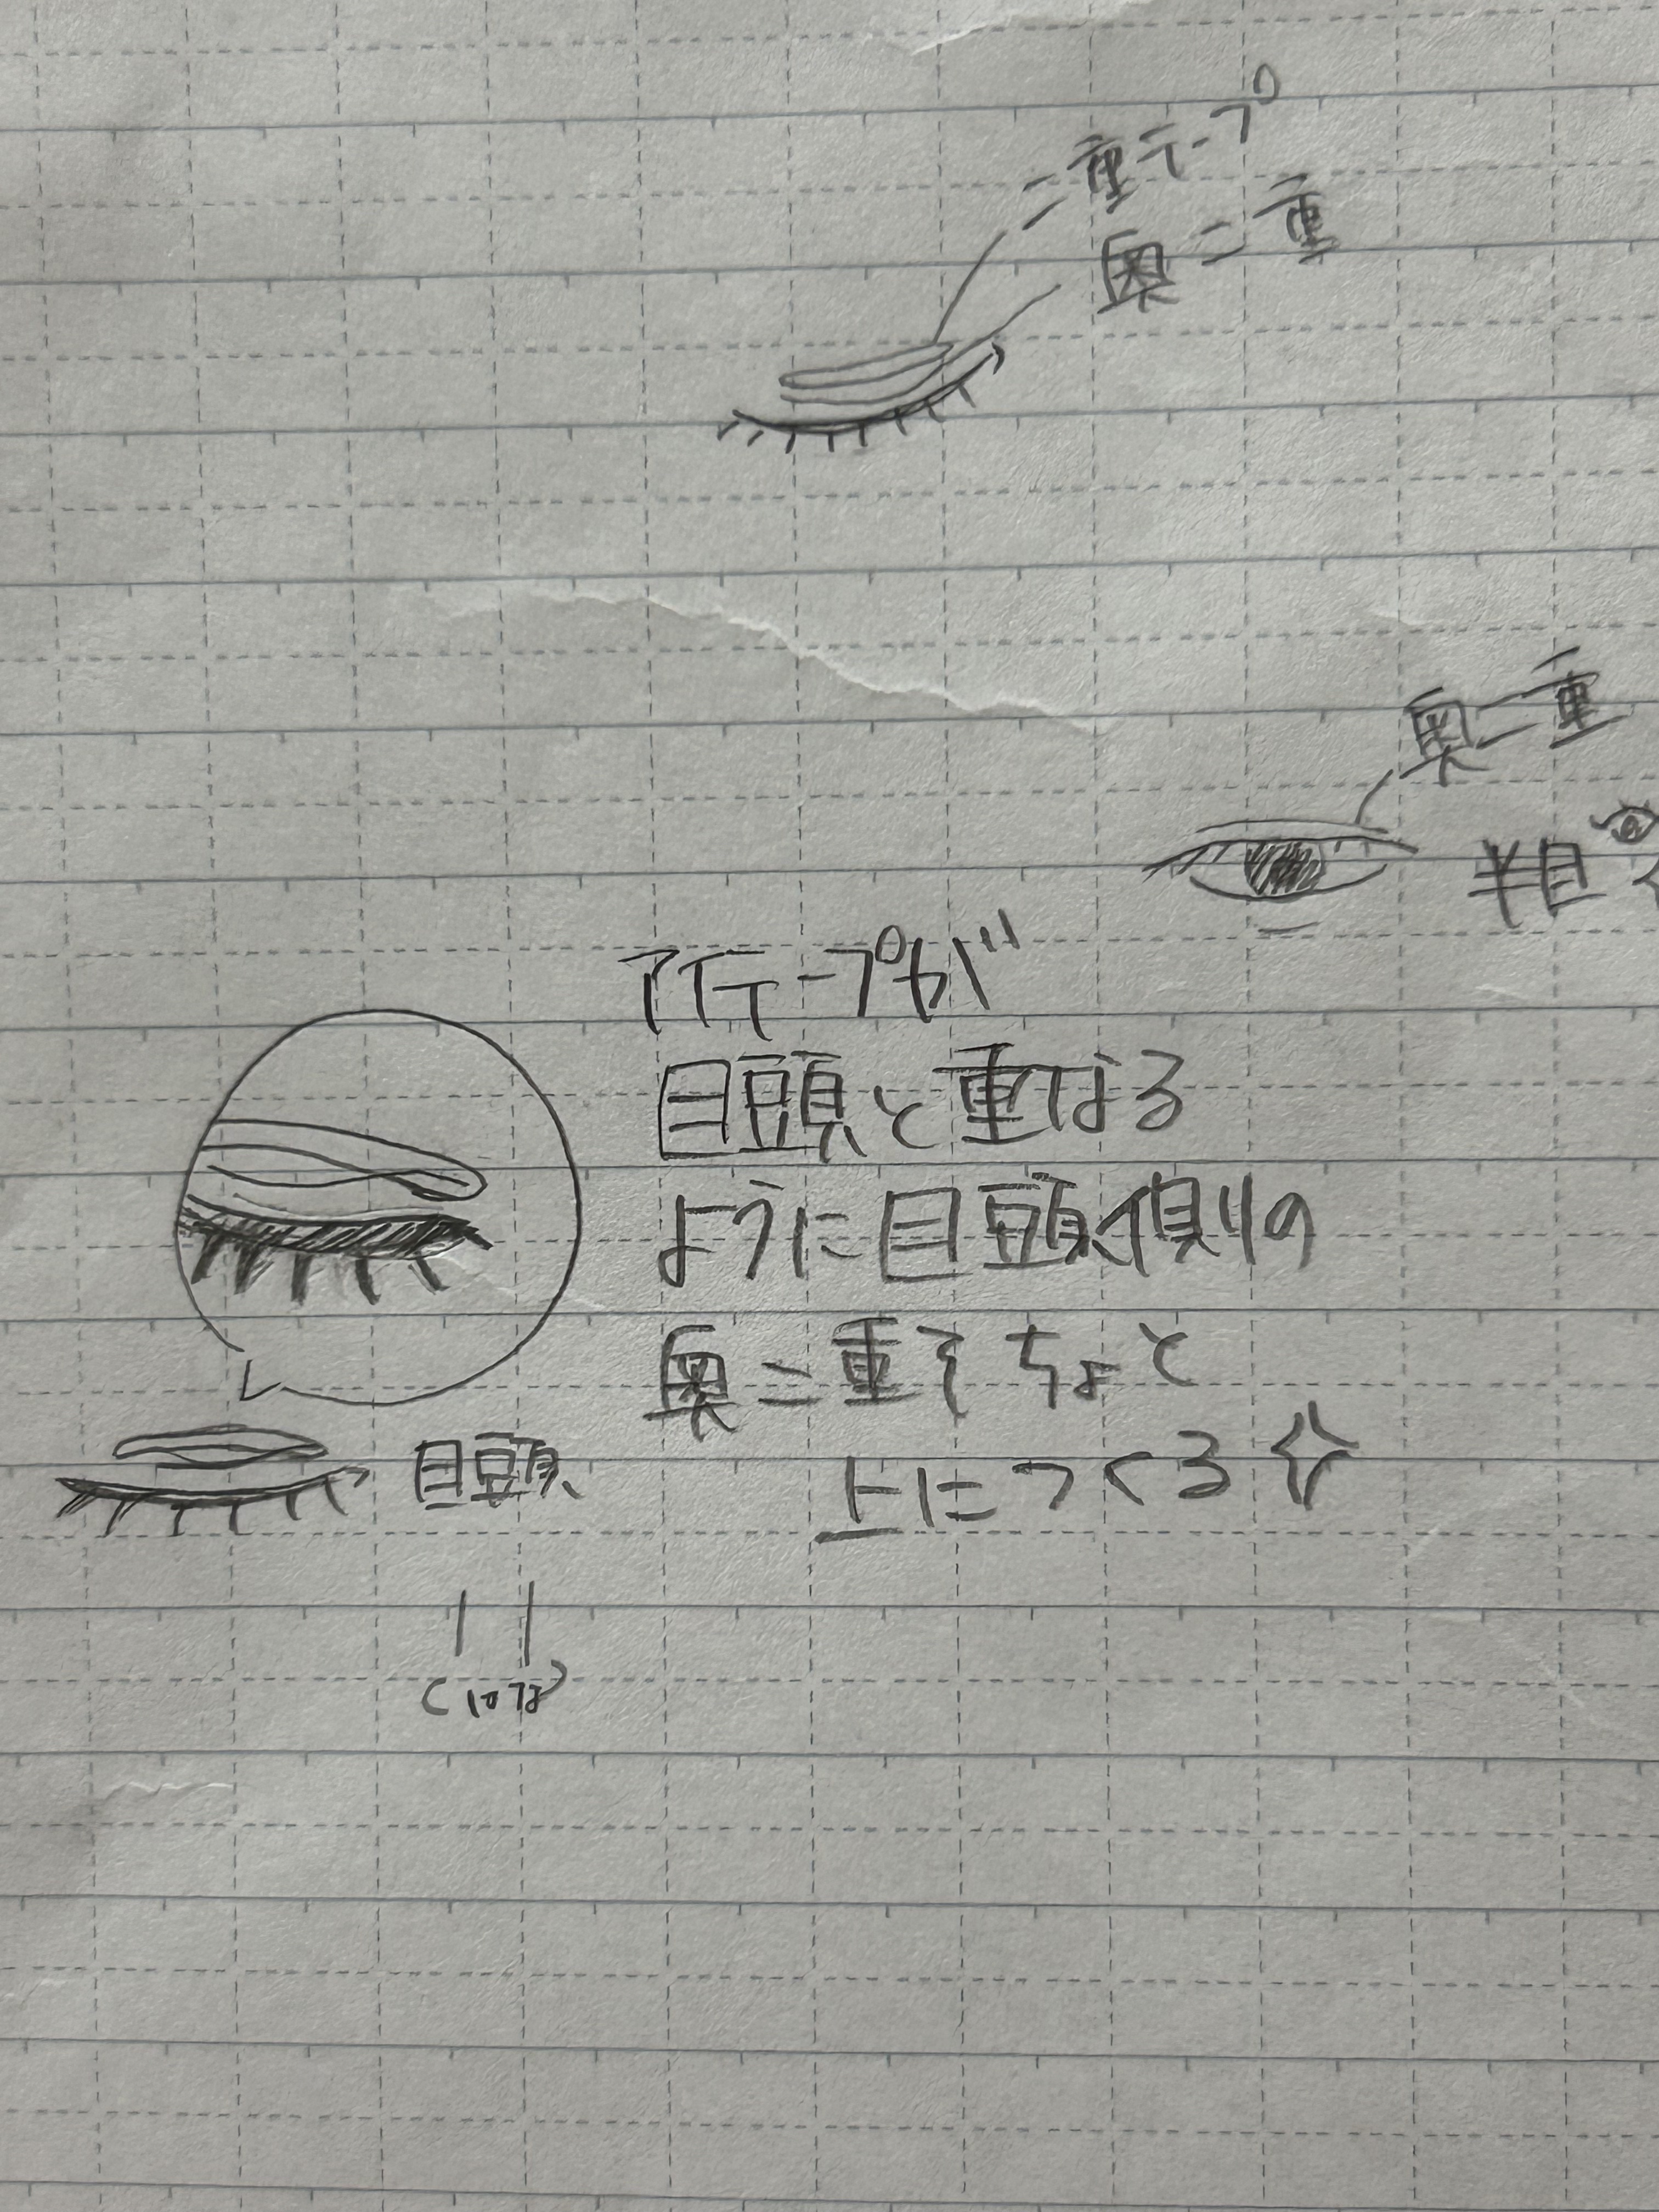 二重テープ
奥二重
奥二重
半目
アイテープが
目頭と重なる
ように目頭側の
奥二重をちょと
上につくる
目頭
(はな)